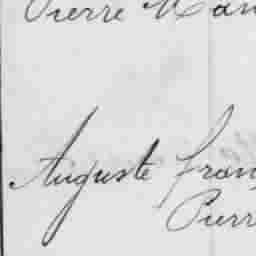 Pierre Man
Auguste Fran
Pierr